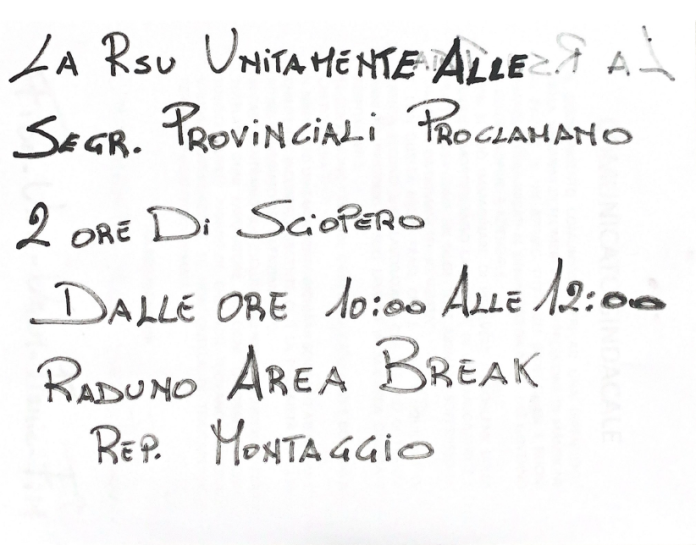 LA RSU UNITAMENTE ALLE
SEGR. PROVINCIALI PROCLAMANO
2 ORE DI SCIOPERO
DALLE ORE 10:00 ALLE 12:00
RADUNO AREA BREAK
REP. MONTAGGIO